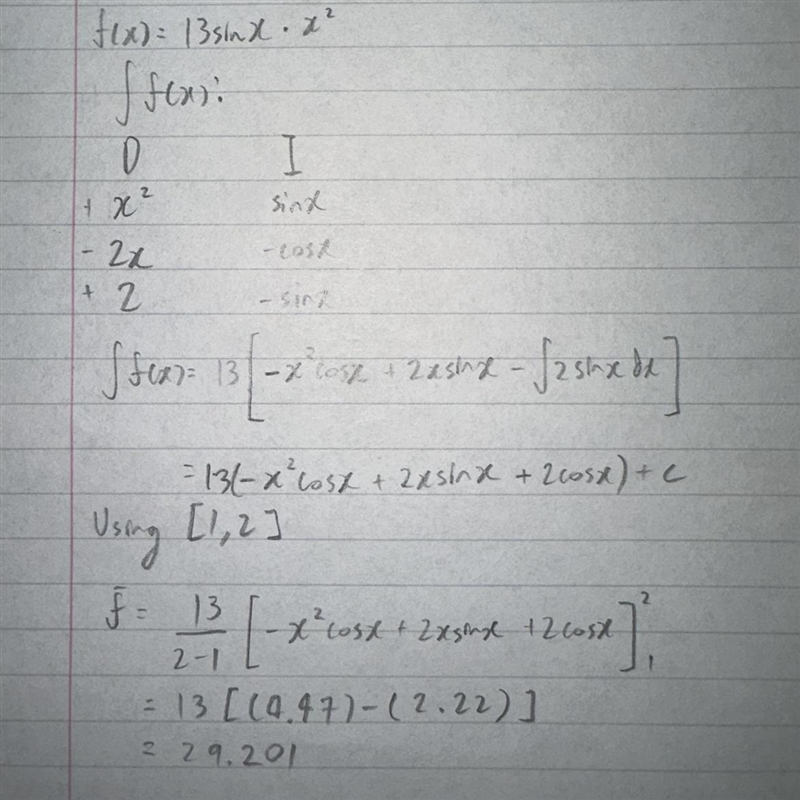 f(x) = 13sinx · x²
∫ f(x):
D I
+ x² sinx
- 2x -cosx
+ 2 -sinx
∫ f(x) = 13 [ -x²cosx + 2xsinx - ∫2sinx dx ]
= 13(-x²cosx + 2xsinx + 2cosx) + c
Using [1,2]
f̄ = 13/(2-1) [ -x²cosx + 2xsinx + 2cosx ]₁²
= 13 [(4.47) - (2.22)]
= 29.201